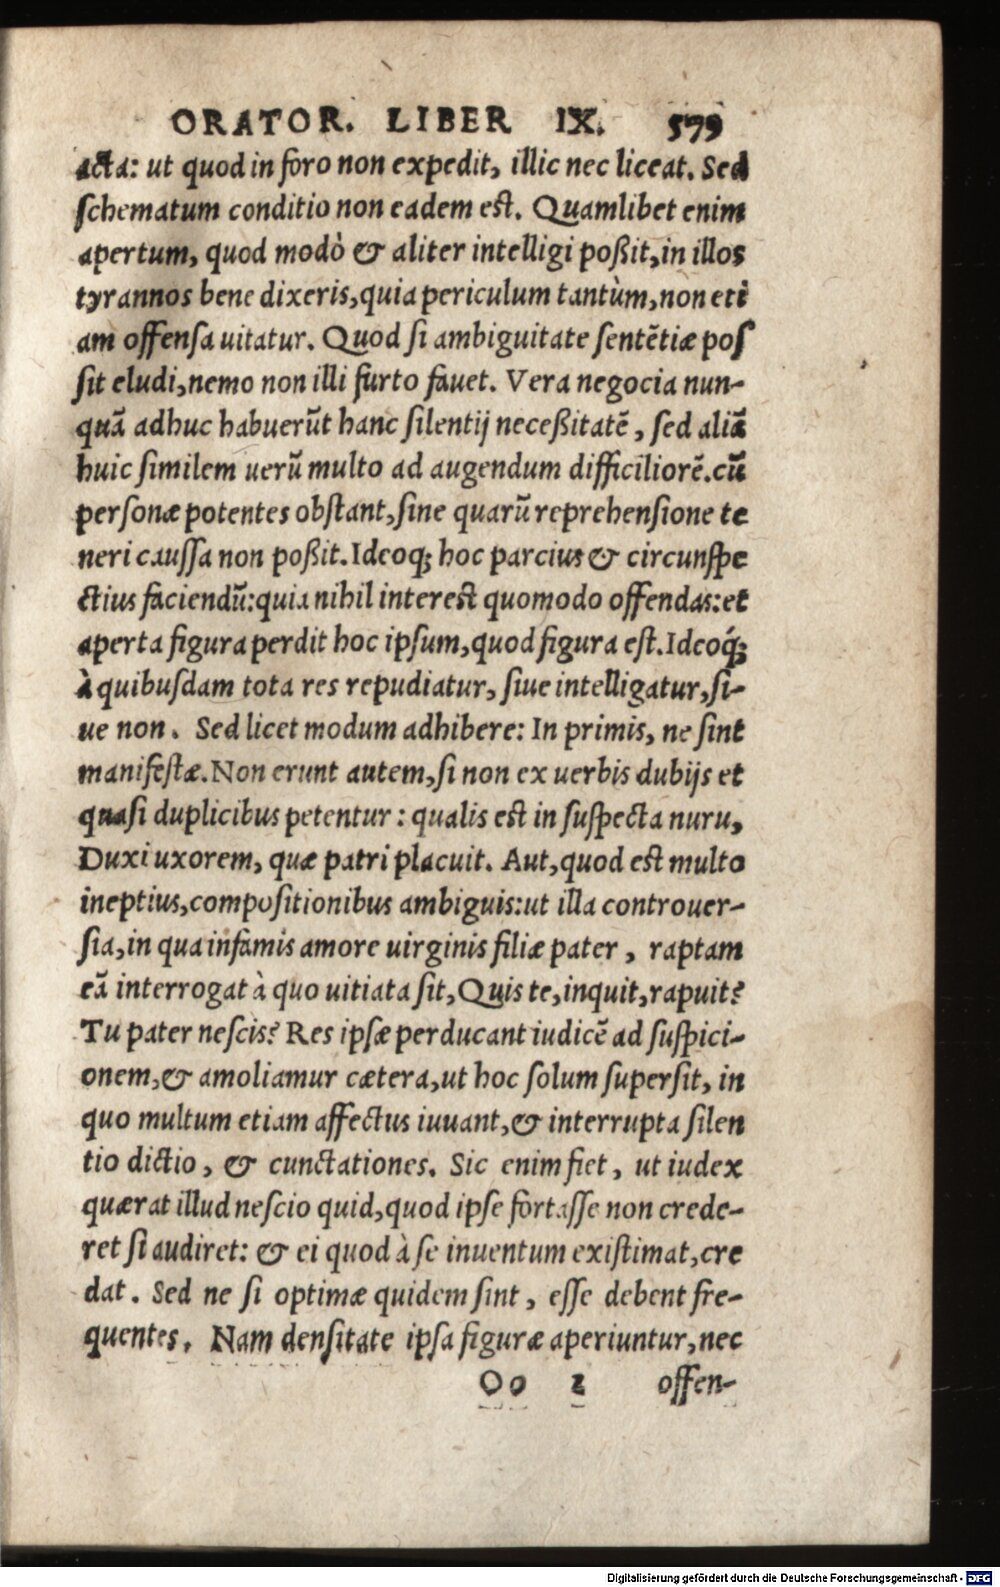 ORATOR. LIBER IX. 579
acta: ut quod in foro non expedit, illic nec liceat. Sed
ſchematum conditio non eadem eſt. Quamlibet enim
apertum, quod modò & aliter intelligi poßit, in illos
tyrannos bene dixeris, quia periculum tantùm, non eti
am offenſa uitatur. Quod ſi ambiguitate ſentētiæ poſ
ſit eludi, nemo non illi furto fauet. Vera negocia nun-
quā adhuc habuerūt hanc ſilentij neceßitatē, ſed aliā
huic ſimilem uerū multo ad augendum difficiliorē. cū
perſonæ potentes obſtant, ſine quarū reprehenſione te
neri cauſſa non poßit. Ideoq; hoc parcius & circunſpe
ctius faciendū: quia nihil intereſt quomodo offendas: et
aperta figura perdit hoc ipſum, quod figura eſt. Ideoq́;
à quibuſdam tota res repudiatur, ſiue intelligatur, ſi-
ue non. Sed licet modum adhibere: In primis, ne ſint
manifeſtæ. Non erunt autem, ſi non ex uerbis dubijs et
quaſi duplicibus petentur: qualis eſt in ſuſpecta nuru,
Duxi uxorem, quæ patri placuit. Aut, quod eſt multo
ineptius, compoſitionibus ambiguis: ut illa controuer-
ſia, in qua infamis amore uirginis filiæ pater, raptam
eā interrogat à quo uitiata ſit, Quis te, inquit, rapuit?
Tu pater neſcis? Res ipſæ perducant iudicē ad ſuſpici-
onem, & amoliamur cætera, ut hoc ſolum ſuperſit, in
quo multum etiam affectus iuuant, & interrupta ſilen
tio dictio, & cunctationes. Sic enim fiet, ut iudex
quærat illud neſcio quid, quod ipſe fortaſſe non crede-
ret ſi audiret: & ei quod à ſe inuentum exiſtimat, cre
dat. Sed ne ſi optimæ quidem ſint, eſſe debent fre-
quentes. Nam denſitate ipſa figuræ aperiuntur, nec
Oo 2 offen-
Digitalisierung gefördert durch die Deutsche Forschungsgemeinschaft - DFG